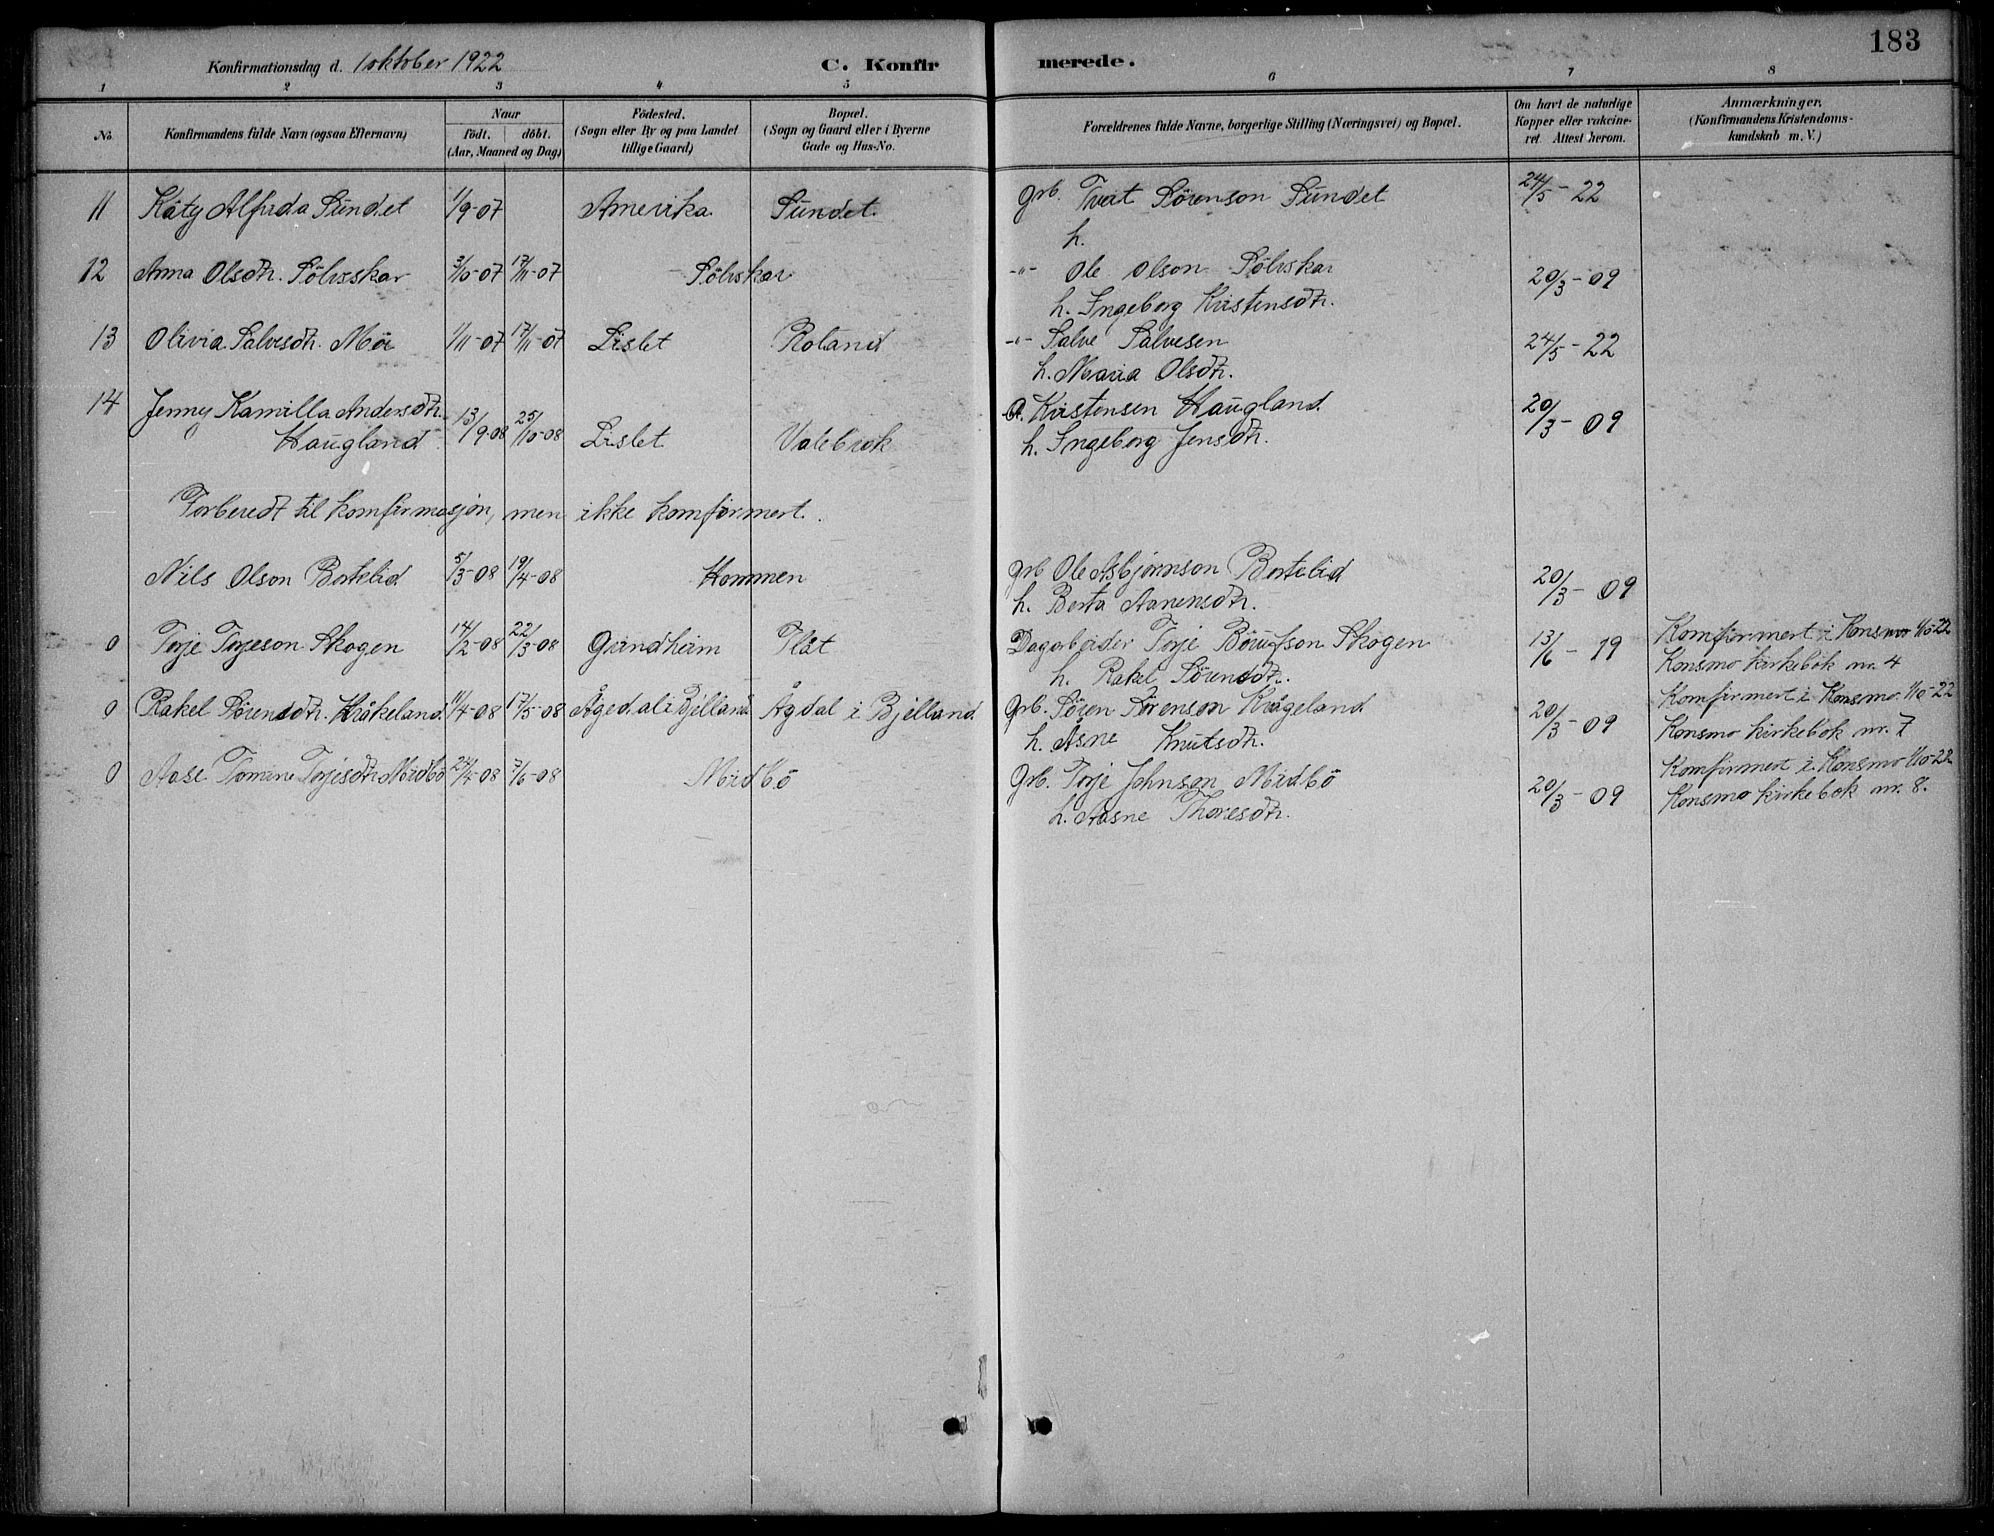 183
Konfirmationsdag d. 1 oktober 1922 C. Konfir merede.
1 2 3 4 5 6 7 8
No. Konfirmandens fulde Navn (ogsaa Efternavn) Naar födt. döbt. (Aar, Maaned og Dag) Födested. (Sogn eller By og paa Landet tillige Gaard) Bopæl. (Sogn og Gaard eller i Byerne Gade og Hus-No. Forældrenes fulde Navne, borgerlige Stilling (Næringsvei) og Bopæl. Om havt de naturlige Kopper eller vakcineret. Attest herom. Anmærkninger. (Konfirmandens Kristendomskundskab m. V.)
11 Käty Alfrida Sundet 1/9-07 Amerika Sundet grb. Tveit Sörenson Sundet 24/5-22
h.
12 Anna Olsdtr. Sölvsskar 3/10-07 17/11-07 Sölvskar -"- Ole Olson Sölvskar 20/3-09
h. Ingeborg Kristensdtr.
13 Olivia Salvesdtr. Möi 1/11-07 17/11-07 Lislet Roland -"- Salve Salvesen 24/5-22
h. Maria Olsdtr.
14 Jenny Kamilla Andersdtr. A. Kristensen Haugland
Haugland 13/9-08 25/10-08 Lislet Valebrok h. Ingeborg Jensdtr. 20/3-09
Forberedt til komfirmasjon, men ikke komfirmert.
Nils Olson Bortelid 5/3-08 19/4-08 Hommen grb Ole Asbjörnson Bortelid 20/3-09
h. Berta Aanensdtr.
0 Torje Torjeson Skogen 14/2-08 22/3-08 Grindheim Flåt Dagarbeider Torje Börufson Skogen 13/6-19 Komfirmert i Konsmo 1/10-22
h. Rakel Sörensdtr. Konsmo kirkebok nr. 4
0 Rakel Sörensdtr. Kråkeland 11/4-08 17/5-08 Ågedal i Bjelland Ågdal i Bjelland grb. Sören Sörenson Krågeland 20/3-09 Komfirmert i Konsmo 1/10-22
h. Åsne Knutsdtr. Konsmo kirkebok nr. 7
0 Aase Tomine Torjesdtr Midbö 24/4-08 7/6-08 Midbö Grb. Torje Johnson Midbö 20/3-09 Komfirmert i Konsmo 1/10-22
h. Aasne Thoresdtr. Konsmo kirkebok nr. 8.